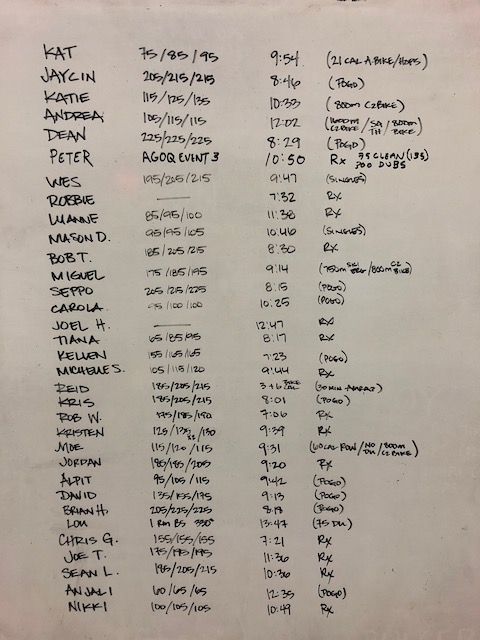 KAT 75/85/95 9:54 (21 CAL A.BIKE/HOPS)
JAYLIN 205/215/215 8:46 (POGO)
KATIE 115/125/135 10:33 (800m C2BIKE)
ANDREA 105/115/115 12:02 (1600m C2BIKE/SQ TH/800m BIKE)
DEAN 225/225/225 8:29 (POGO)
PETER AGOQ EVENT 3 10:50 Rx 75 CLEAN (135) 300 DUBS
WES 195/205/215 9:47 (SINGLES)
ROBBIE — 7:32 Rx
LUANNE 85/95/100 11:38 Rx
MASON D. 95/95/105 10:46 (SINGLES)
BOB T. 185/205/215 8:30 Rx
MIGUEL 175/185/195 9:14 (750m SKI ERG/800m C2 BIKE)
SEPPO 205/215/225 8:15 (POGO)
CAROLA 95/100/100 10:25 (POGO)
JOEL H. — 12:47 Rx
TIANA 65/85/95 8:17 Rx
KELLEN 155/165/165 7:23 (POGO)
MICHELLE S. 105/115/120 9:44 Rx
REID 185/205/215 3+6 (30 MIN AMRAP)
KRIS 185/205/215 8:01 (POGO)
ROB W. 175/185/190 7:06 Rx
KRISTEN 125/135/130 9:39 Rx
MOE 115/120/115 9:31 (60 CAL ROW/NO DU/800m C2BIKE)
JORDAN 185/185/205 9:20 Rx
ALPIT 95/105/115 9:42 (POGO)
DAVID 135/155/175 9:13 (POGO)
BRIAN H. 205/225/225 8:19 (POGO)
LOU 1 RM BS 330 13:47 (75 DU)
CHRIS G. 155/155/155 7:21 Rx
JOE T. 175/195/195 11:36 Rx
SEAN L. 195/205/215 10:36 Rx
ANJALI 60/65/65 12:35 (POGO)
NIKKI 100/105/105 10:49 Rx